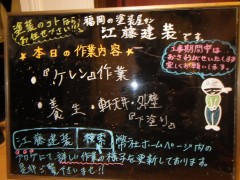 塗装のコトなら
お任せください!!
福岡の塗装屋サン
江藤建装です。
☆本日の作業内容☆
・『ケレン』作業
・養生・軒天井・外壁
『下塗り』
工事期間中は
おさわがせいたしますが
宜しくお願いします
江藤建装 検索 弊社ホームページ内の
ブログにて詳しい作業の様子を更新しております。